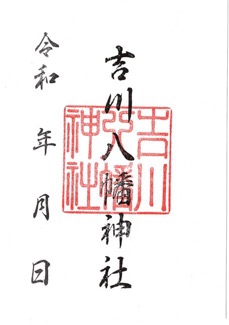 吉川八幡神社
吉川
八幡
神社
令和 年 月 日